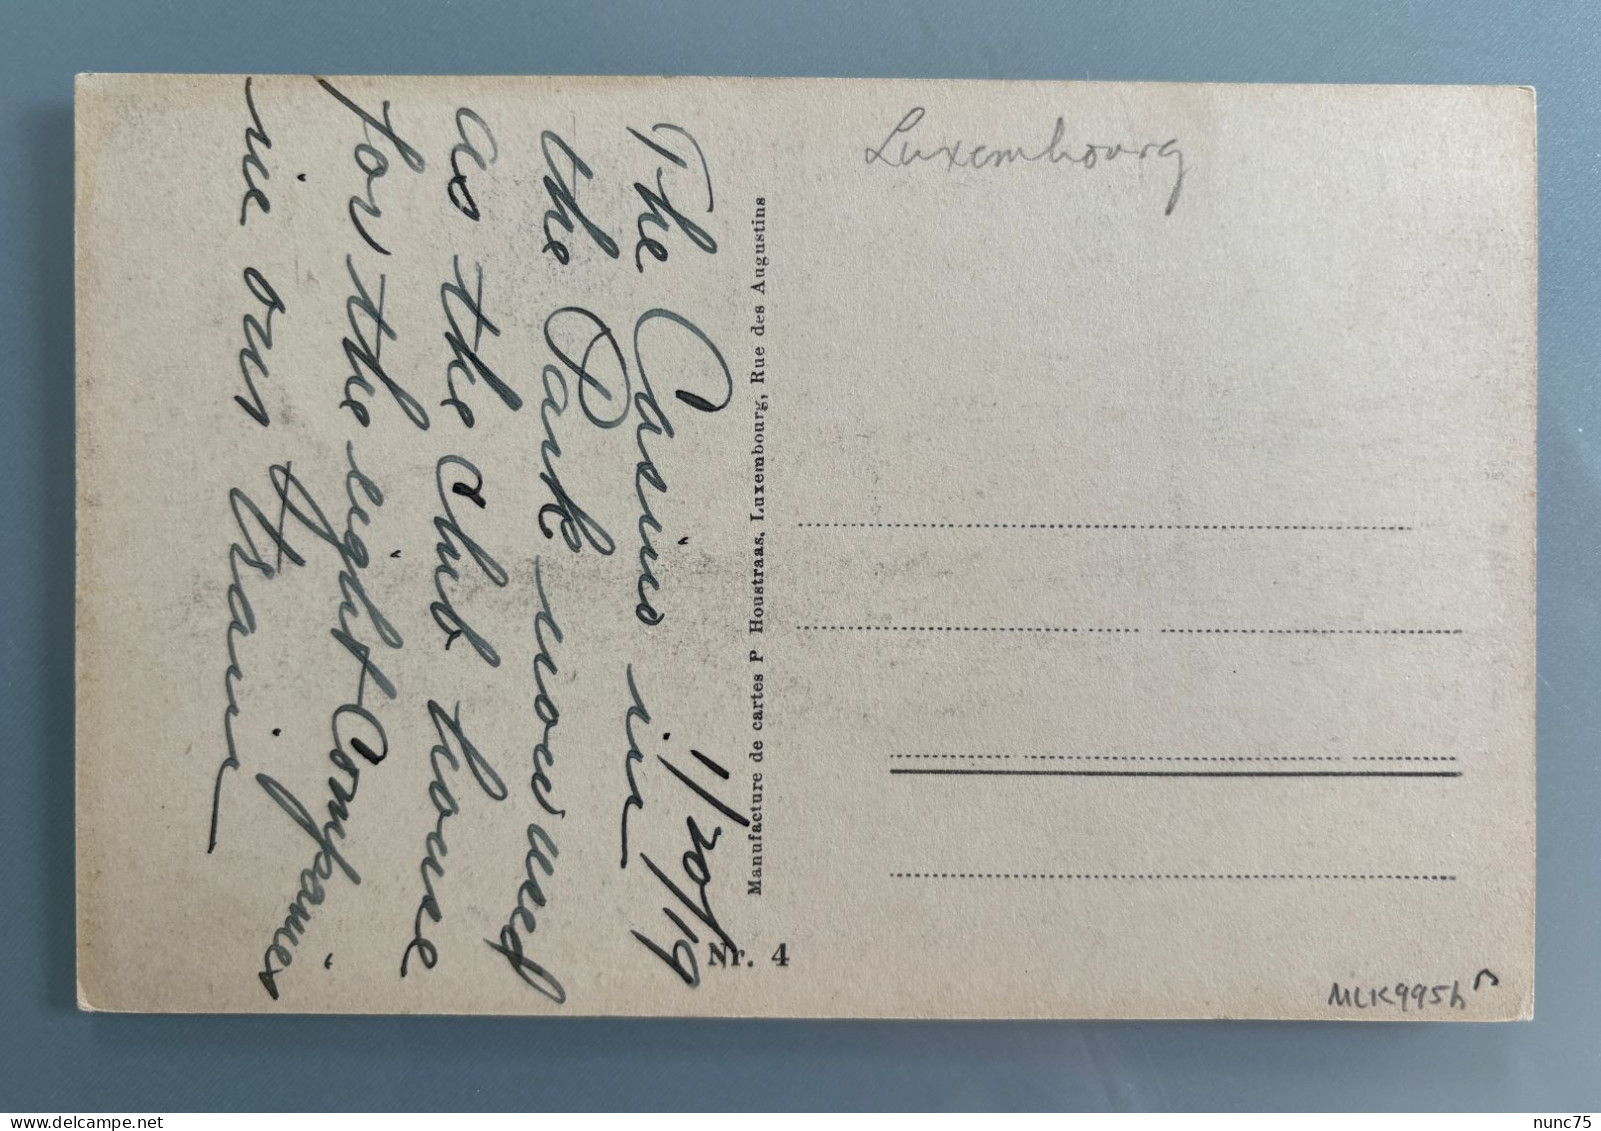 1/20/19
The Casino in
the Park now used
as the Club house
for the eight Companies
in our train
Manufacture de cartes P Houstraas, Luxembourg, Rue des Augustins
Nr. 4
Luxembourg
MLK995h
delcampe.net
nunc75